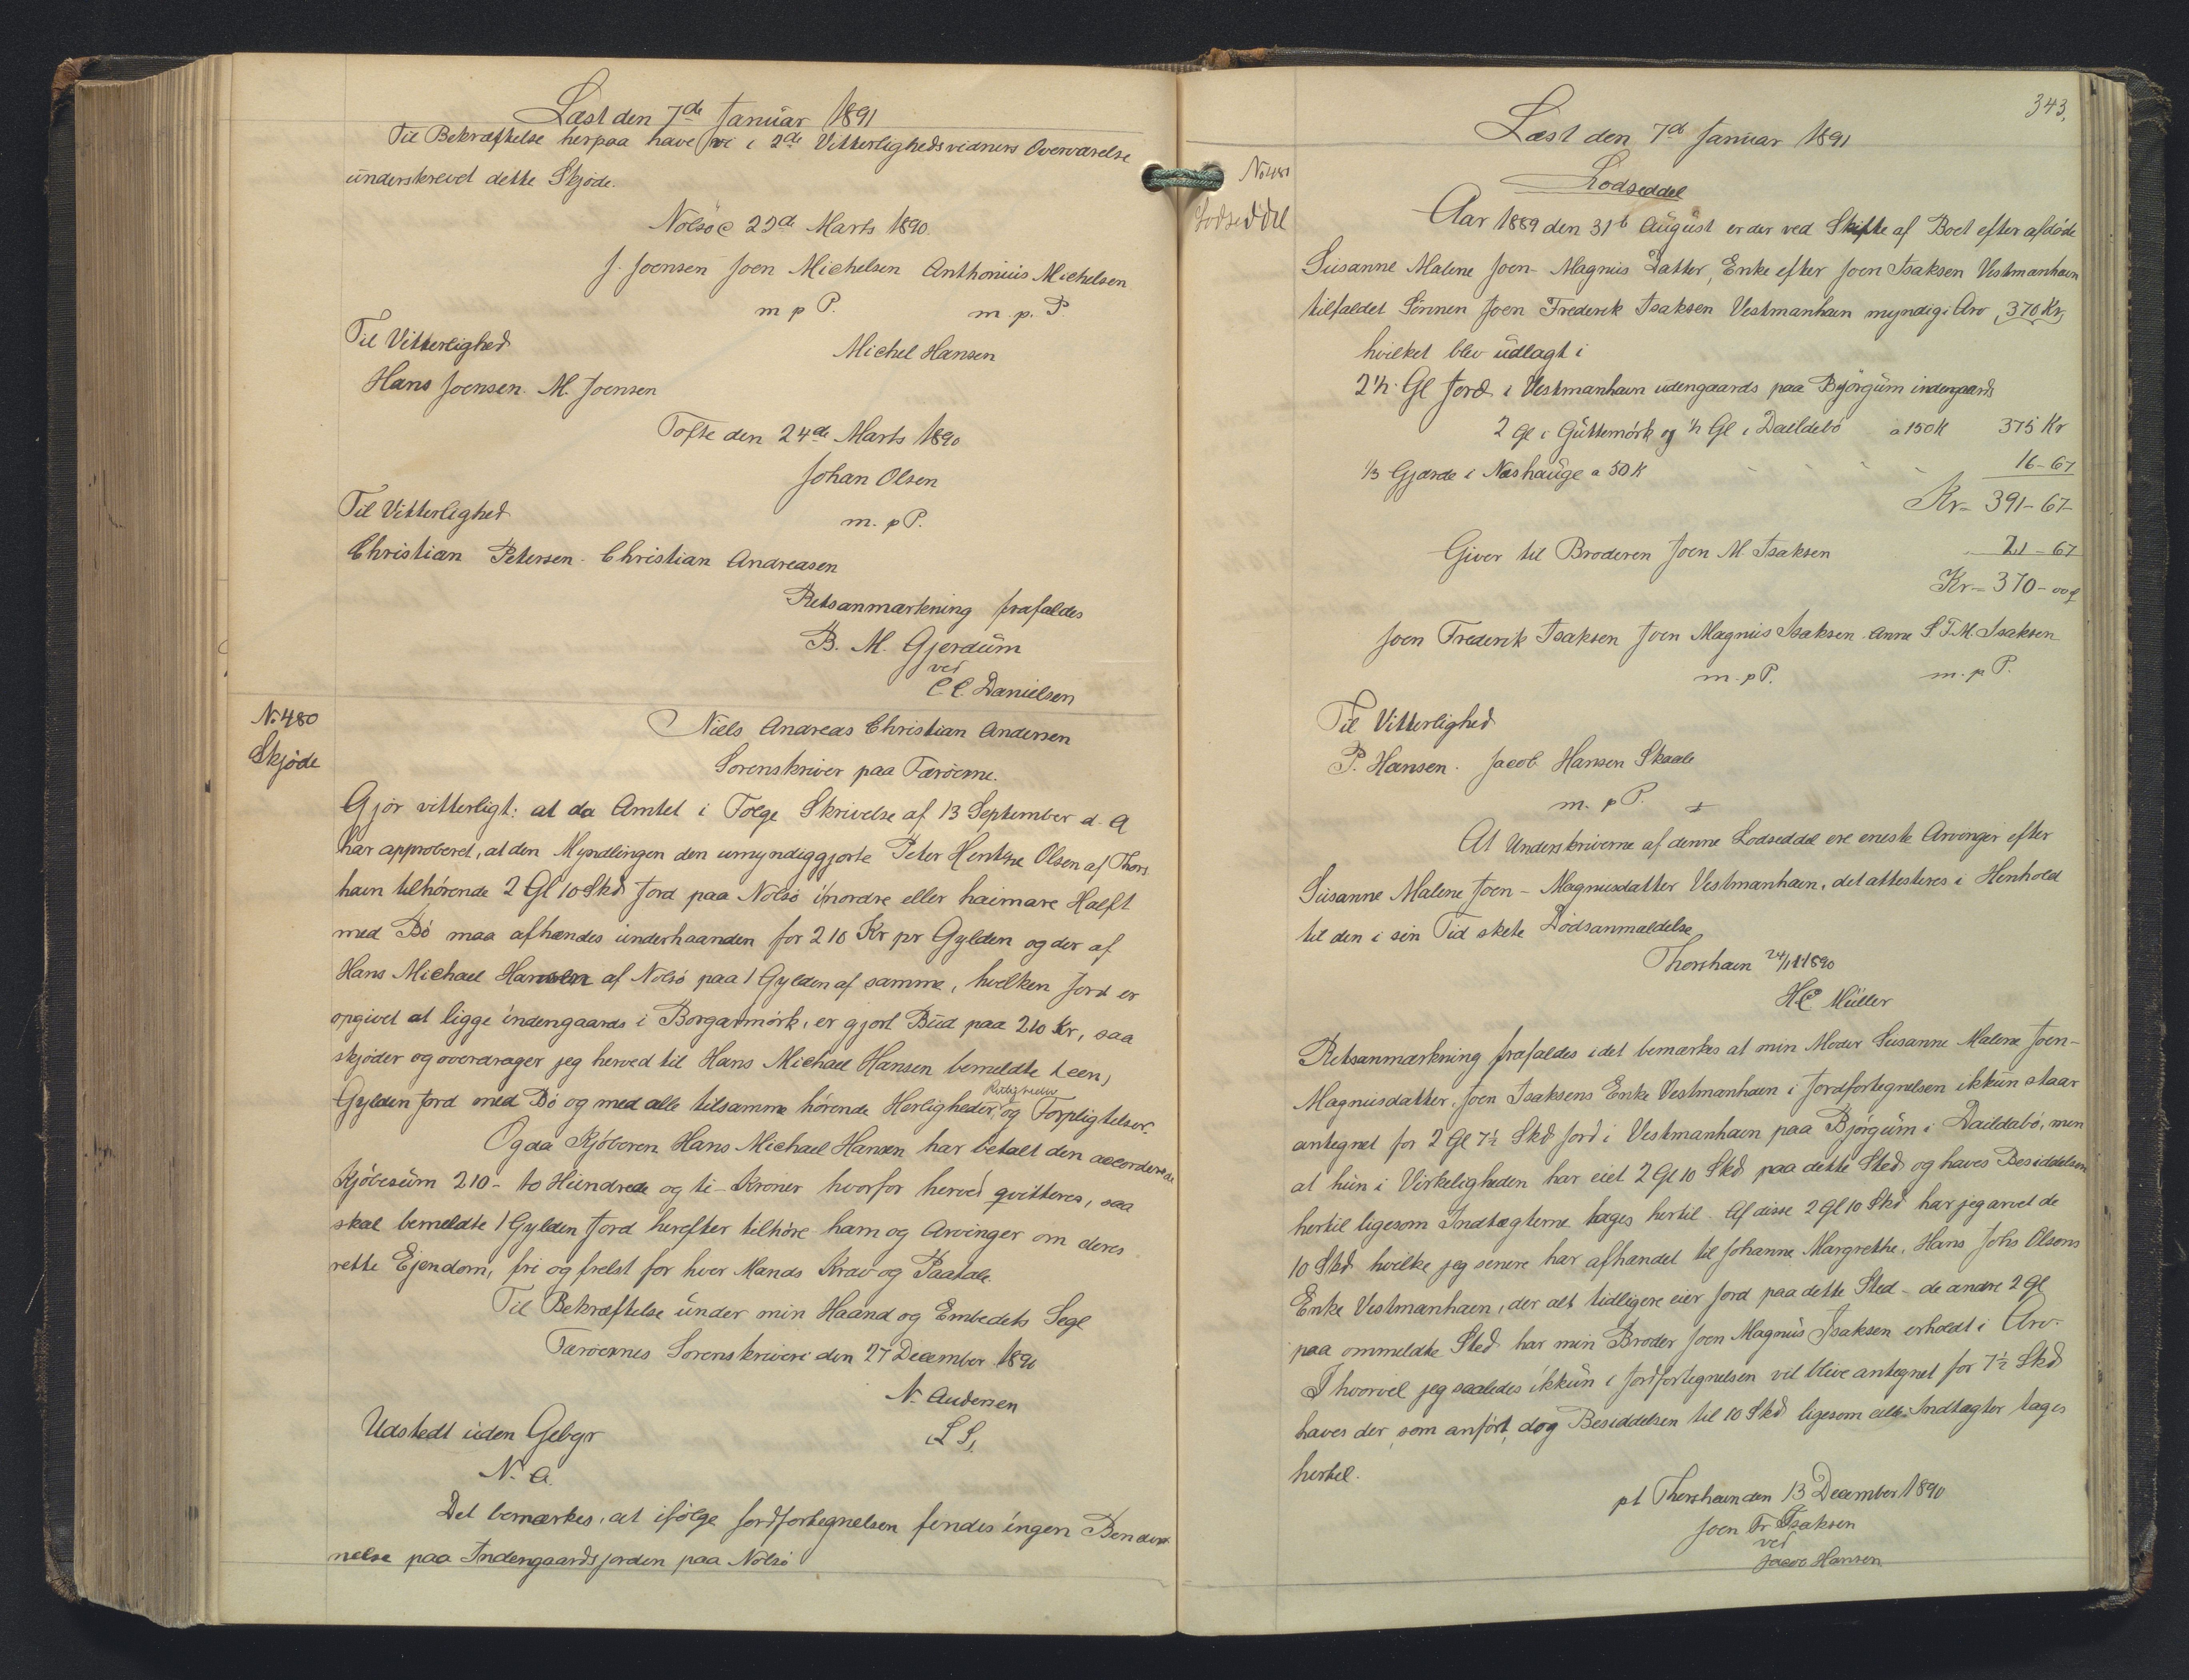 Læst den 7de Januar 1891
Til Bekræftelse herpaa have vi i 2de Vitterlighedsvidners Overværelse
underskrevet dette Skjøde.
Nolsø 23de Marts 1890.
J. Joensen Joen Michelsen Anthonius Michelsen
m p P. m. p. P
Til Vitterlighed Michel Hansen
Hans Joensen. M. Joensen
Tofte den 24de Marts 1890
Johan Olsen
Til Vitterlighed m. p P.
Christian Petersen - Christian Andreasen
Retsanmærkning frafaldes
B. M. Gjerdum
ved
C C. Danielsen
No 480
Skjøde
Niels Andreas Christian Andersen
Sorenskriver paa Færøerne.
Gjør vitterligt: at da Amtet i Følge Skrivelse af 13 September d. A
har approberet, at den Myndlingen den umyndiggjorte Peter Olsen af Thors
havn tilhørende 2 Gl 10 Skd Jord paa Nolsø i nordre eller haimare Halft
med Bø maa afhændes underhaanden for 210 Kr pr Gylden og der af
Hans Michael Hansen af Nolsø paa 1 Gylden af samme, hvilken Jord er
opgivet at ligge indengaards i Borgarmørk, er gjort Bud paa 210 Kr, saa
skjøder og overdrager jeg herved til Hans Michael Hansen bemeldte 1 een)
Gylden Jord med Bø og med alle tilsamme hørende Herligheder, Rettigheder og Forpligtelser.
Og da Kjøberen Hans Michael Hansen har betalt den accorderede
Kjøbesum 210 - to Hundrede og ti - Kroner hvorfor herved qvitteres, saa
skal bemeldte 1 Gylden Jord herefter tilhøre ham og Arvinger om deres
rette Ejendom, fri og frelst for hver Mands Krav og Paatale.
Til Bekræftelse under min Haand og Embedets Segl
Færøernes Sorenskriveri den 27 December 1890
N. Andersen
Udstedt uden Gebyr (L S)
N. A.
Det bemærkes, at ifølge Jordfortegnelsen findes ingen Benæv-
nelse paa Indengaardsjorden paa Nolsø
343.
Læst den 7d Januar 1891
No 481
Lodseddel
Lodseddel
Aar 1889 den 31t August er der ved Skifte af Boet efter afdøde
Susanne Malene Joen- Magnus Datter, Enke efter Joen Isaksen Vestmanhavn
tilfaldet Sønnen Joen Frederik Isaksen Vestmanhavn myndig i Arv 370 Kr,
hvilket blev udlagt i
2 ½ Gl Jord i Vestmanhavn udengaards paa Bjørgum indengaards
2 Gl i Guttemørk og ½ Gl i Daildebø a 150 K 375 Kr
1/3 Gjærde i Næshauge a 50 K - - - - 16-67
Kr- 391-67-
Giver til Broderen Joen M. Isaksen 21-67
Kr= 370-00
Joen Frederik Isaksen Joen Magnus Isaksen Anne S I. M. Isaksen
m. p P. m. p P.
Til Vitterlighed
P. Hansen. Jacob Hansen Skaale
m. p P. +
At Underskriverne af denne Lodseddel ere eneste Arvinger efter
Susanne Malene Joen - Magnusdatter Vestmanhavn, det attesteres i Henhold
til den i sin Tid skete Dødsanmældelse
Thorshavn 24/11 1890
H C Müller
Retsanmærkning frafaldes idet bemærkes at min Moder Susanne Malene Joen-
Magnusdatter, Joen Isaksens Enke Vestmanhavn i Jordfortegnelsen ikkun staar
antegnet for 2 Gl 7½ Skd Jord i Vestmanhavn paa Bjørgum i Daildabø, men
at hun i Virkeligheden har eiet 2 Gl 10 Skd paa dette Sted og haves Besiddelsen
hertil ligesom Indtægterne tages hertil. Af disse 2 Gl 10 Skd har jeg arvet de
10 Skd hvilke jeg senere har afhændet til Johanne Margrethe, Hans Johs Olsens
Enke Vestmanhavn, der alt tidligere eier Jord paa dette Sted - de andre 2 Gl
paa ommeldte Sted har min Broder Joen Magnus Isaksen erholdt i Arv.
I hvorvel jeg saaledes ikkun i Jordfortegnelsen vil blive antegnet for 7½ Skd
haves der, som anført, dog Besiddelsen til 10 Skd ligesom Indtægter tages
hertil.
pt Thorshavn den 13 December 1890
Joen Fr Isaksen
ved
Jacob Hansen